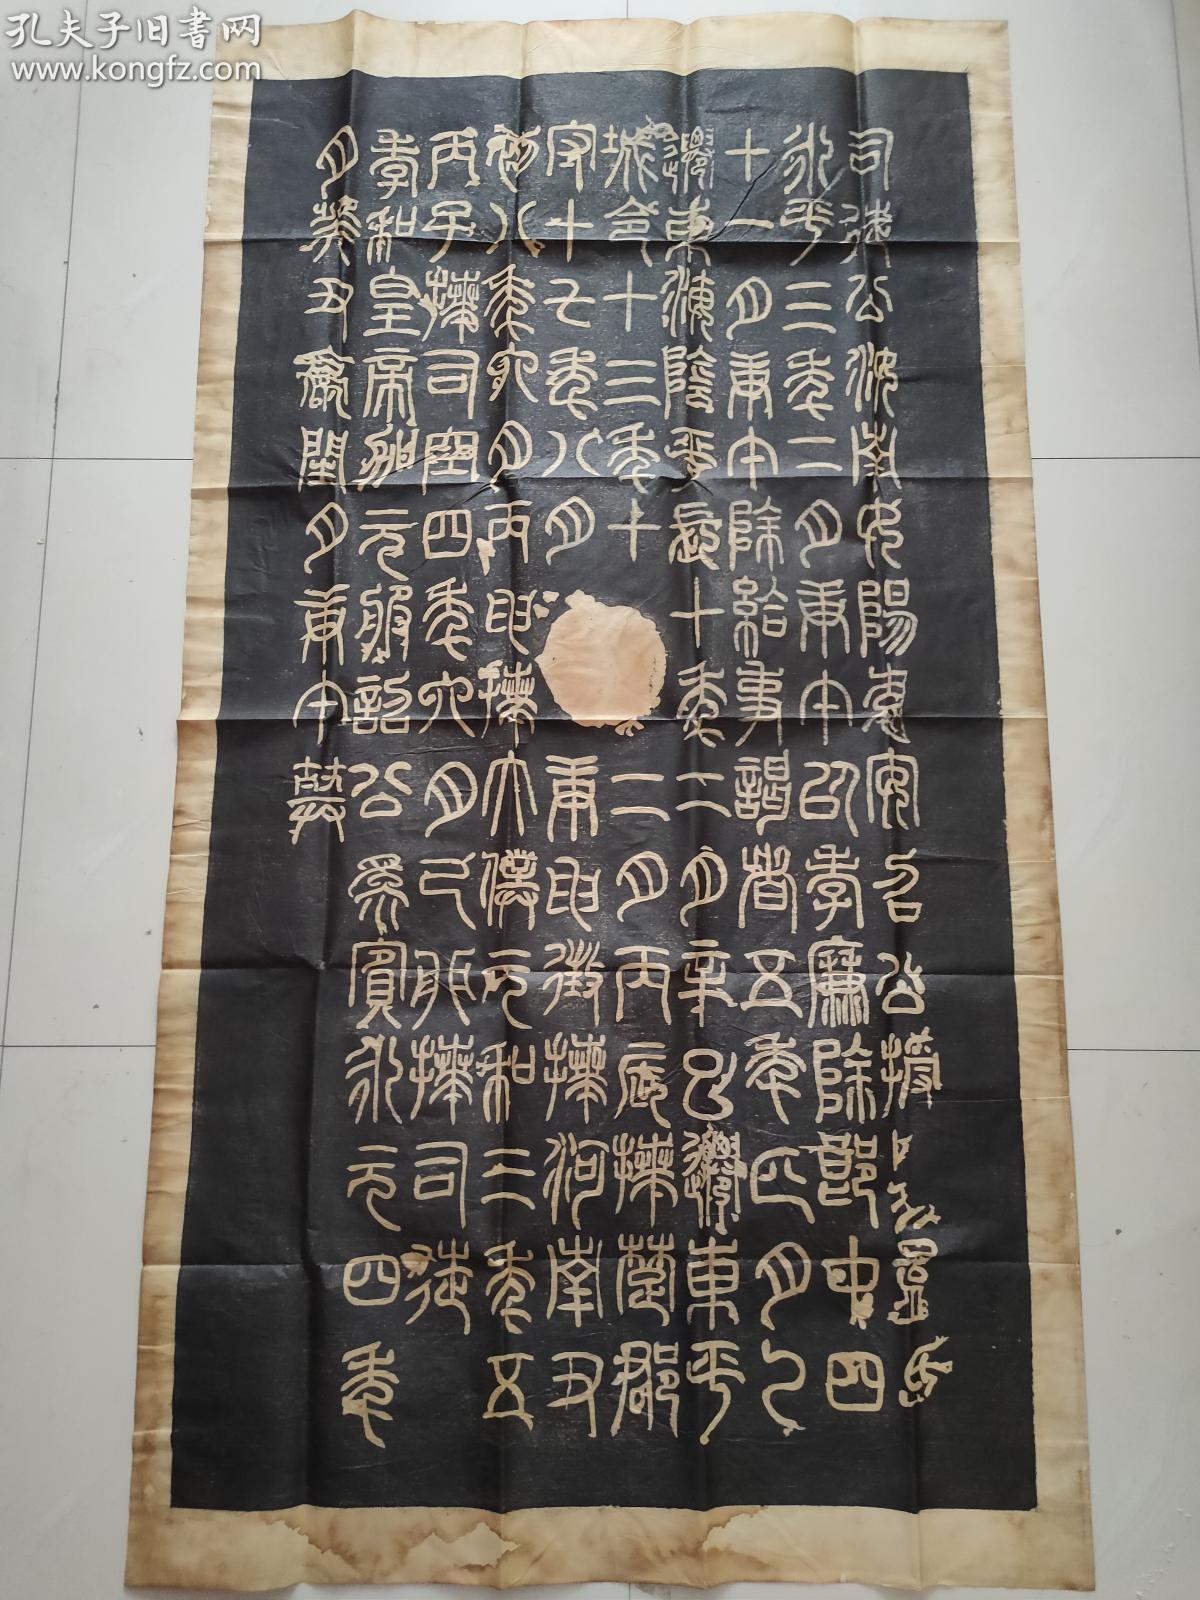 孔夫子旧書网
www.kongfz.com
司徒公汝南女陽袁安召公授易孟氏
永平三年二月庚午以孝廉除郎中四
十一月庚午除給事謁者五年正月乙
遷東海陰平長十年二月辛巳遷東平
城令十三年十二月丙辰拜楚郡
守十七年八月庚申徵拜河南尹
初八年六月丙申拜太僕元和三年五
丙子拜司空四年六月己卯拜司徒
孝和皇帝加元服詔公為賓永元四年
月癸丑薨閏月庚午葬